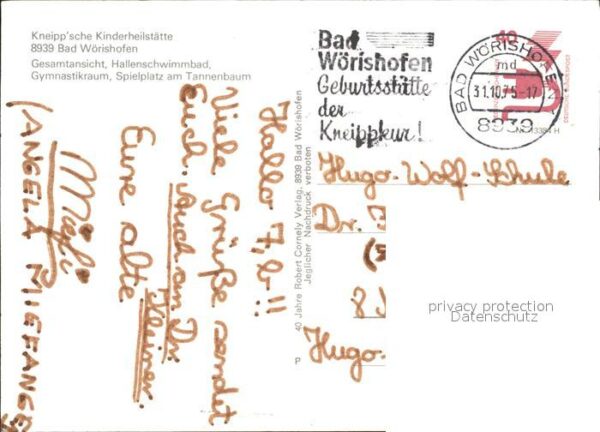 Kneipp'sche Kinderheilstätte
8939 Bad Wörishofen
Gesamtansicht, Hallenschwimmbad,
Gymnastikraum, Spielplatz am Tannenbaum
Bad
Wörishofen
Geburtsstätte
der
Kneippkur!
40
BAD WÖRISHOFEN
md
31.10.75-17
8939
Hallo 7,b!!
Viele Grüße sendet
Euch. Auch an Dr.
Kleiner.
Eure alte
Miefi
(ANGELA MIEFANGE
40 Jahre Robert Cornely Verlag, 8939 Bad Wörishofen
Jeglicher Nachdruck verboten
P
Hugo-Wolf-Schule
Dr.
8
Hugo-
privacy protection
Datenschutz